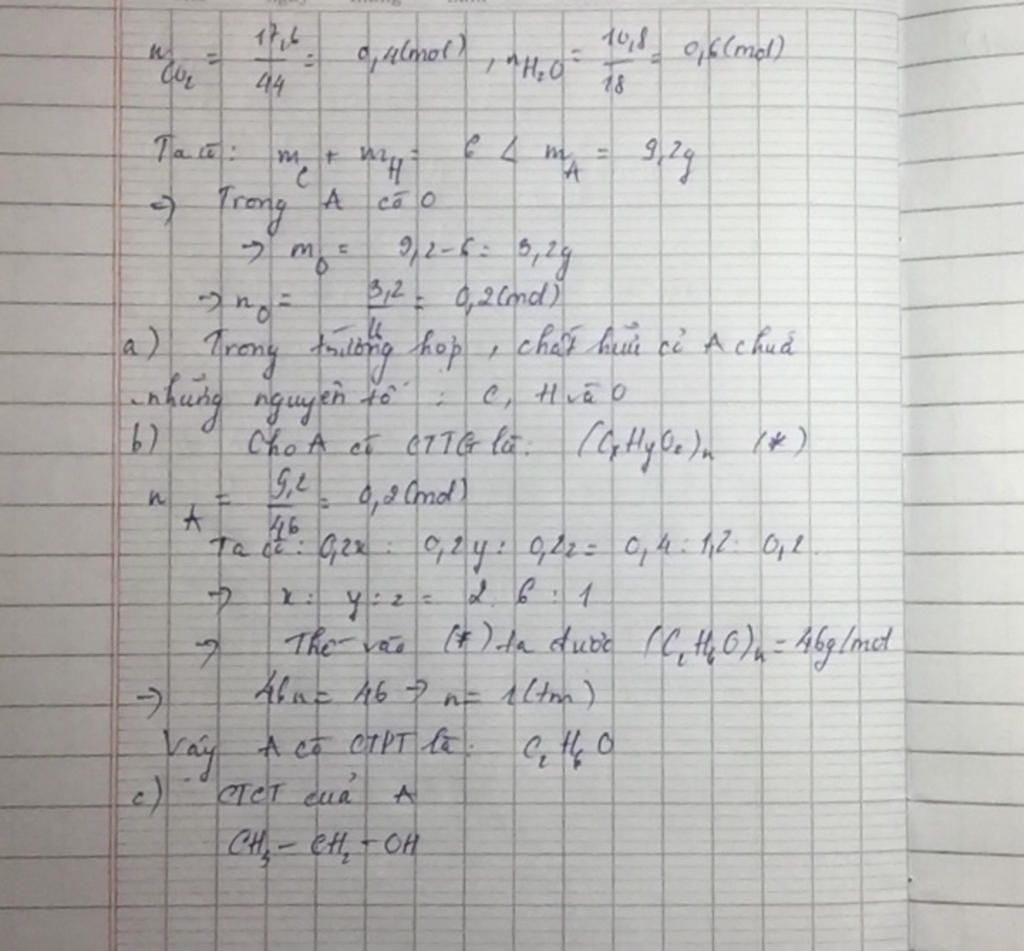 n_CO₂ = 17,6/44 = 0,4(mol), n_H₂O = 10,8/18 = 0,6(mol)
Ta có: m_C + m_H = 6 < m_A = 9,2g
⇒ Trong A có O
→ m_O = 9,2-6 = 3,2g
→ n_O = 3,2/16 = 0,2(mol)
a) Trong trường hợp, chất hữu cơ A chứa
những nguyên tố : C, H và O
b) Cho A có CTTG là: (CxHyOz)n (*)
n_A = 9,2/46 = 0,2(mol)
Ta có: 0,2x : 0,2y : 0,2z = 0,4 : 1,2 : 0,2
→ x : y : z = 2 : 6 : 1
→ Thế vào (*) ta được (C₂H₆O)n = 46g/mol
→ 46n = 46 → n = 1(tm)
Vậy A có CTPT là: C₂H₆O
c) CTCT của A
CH₃ - CH₂ - OH